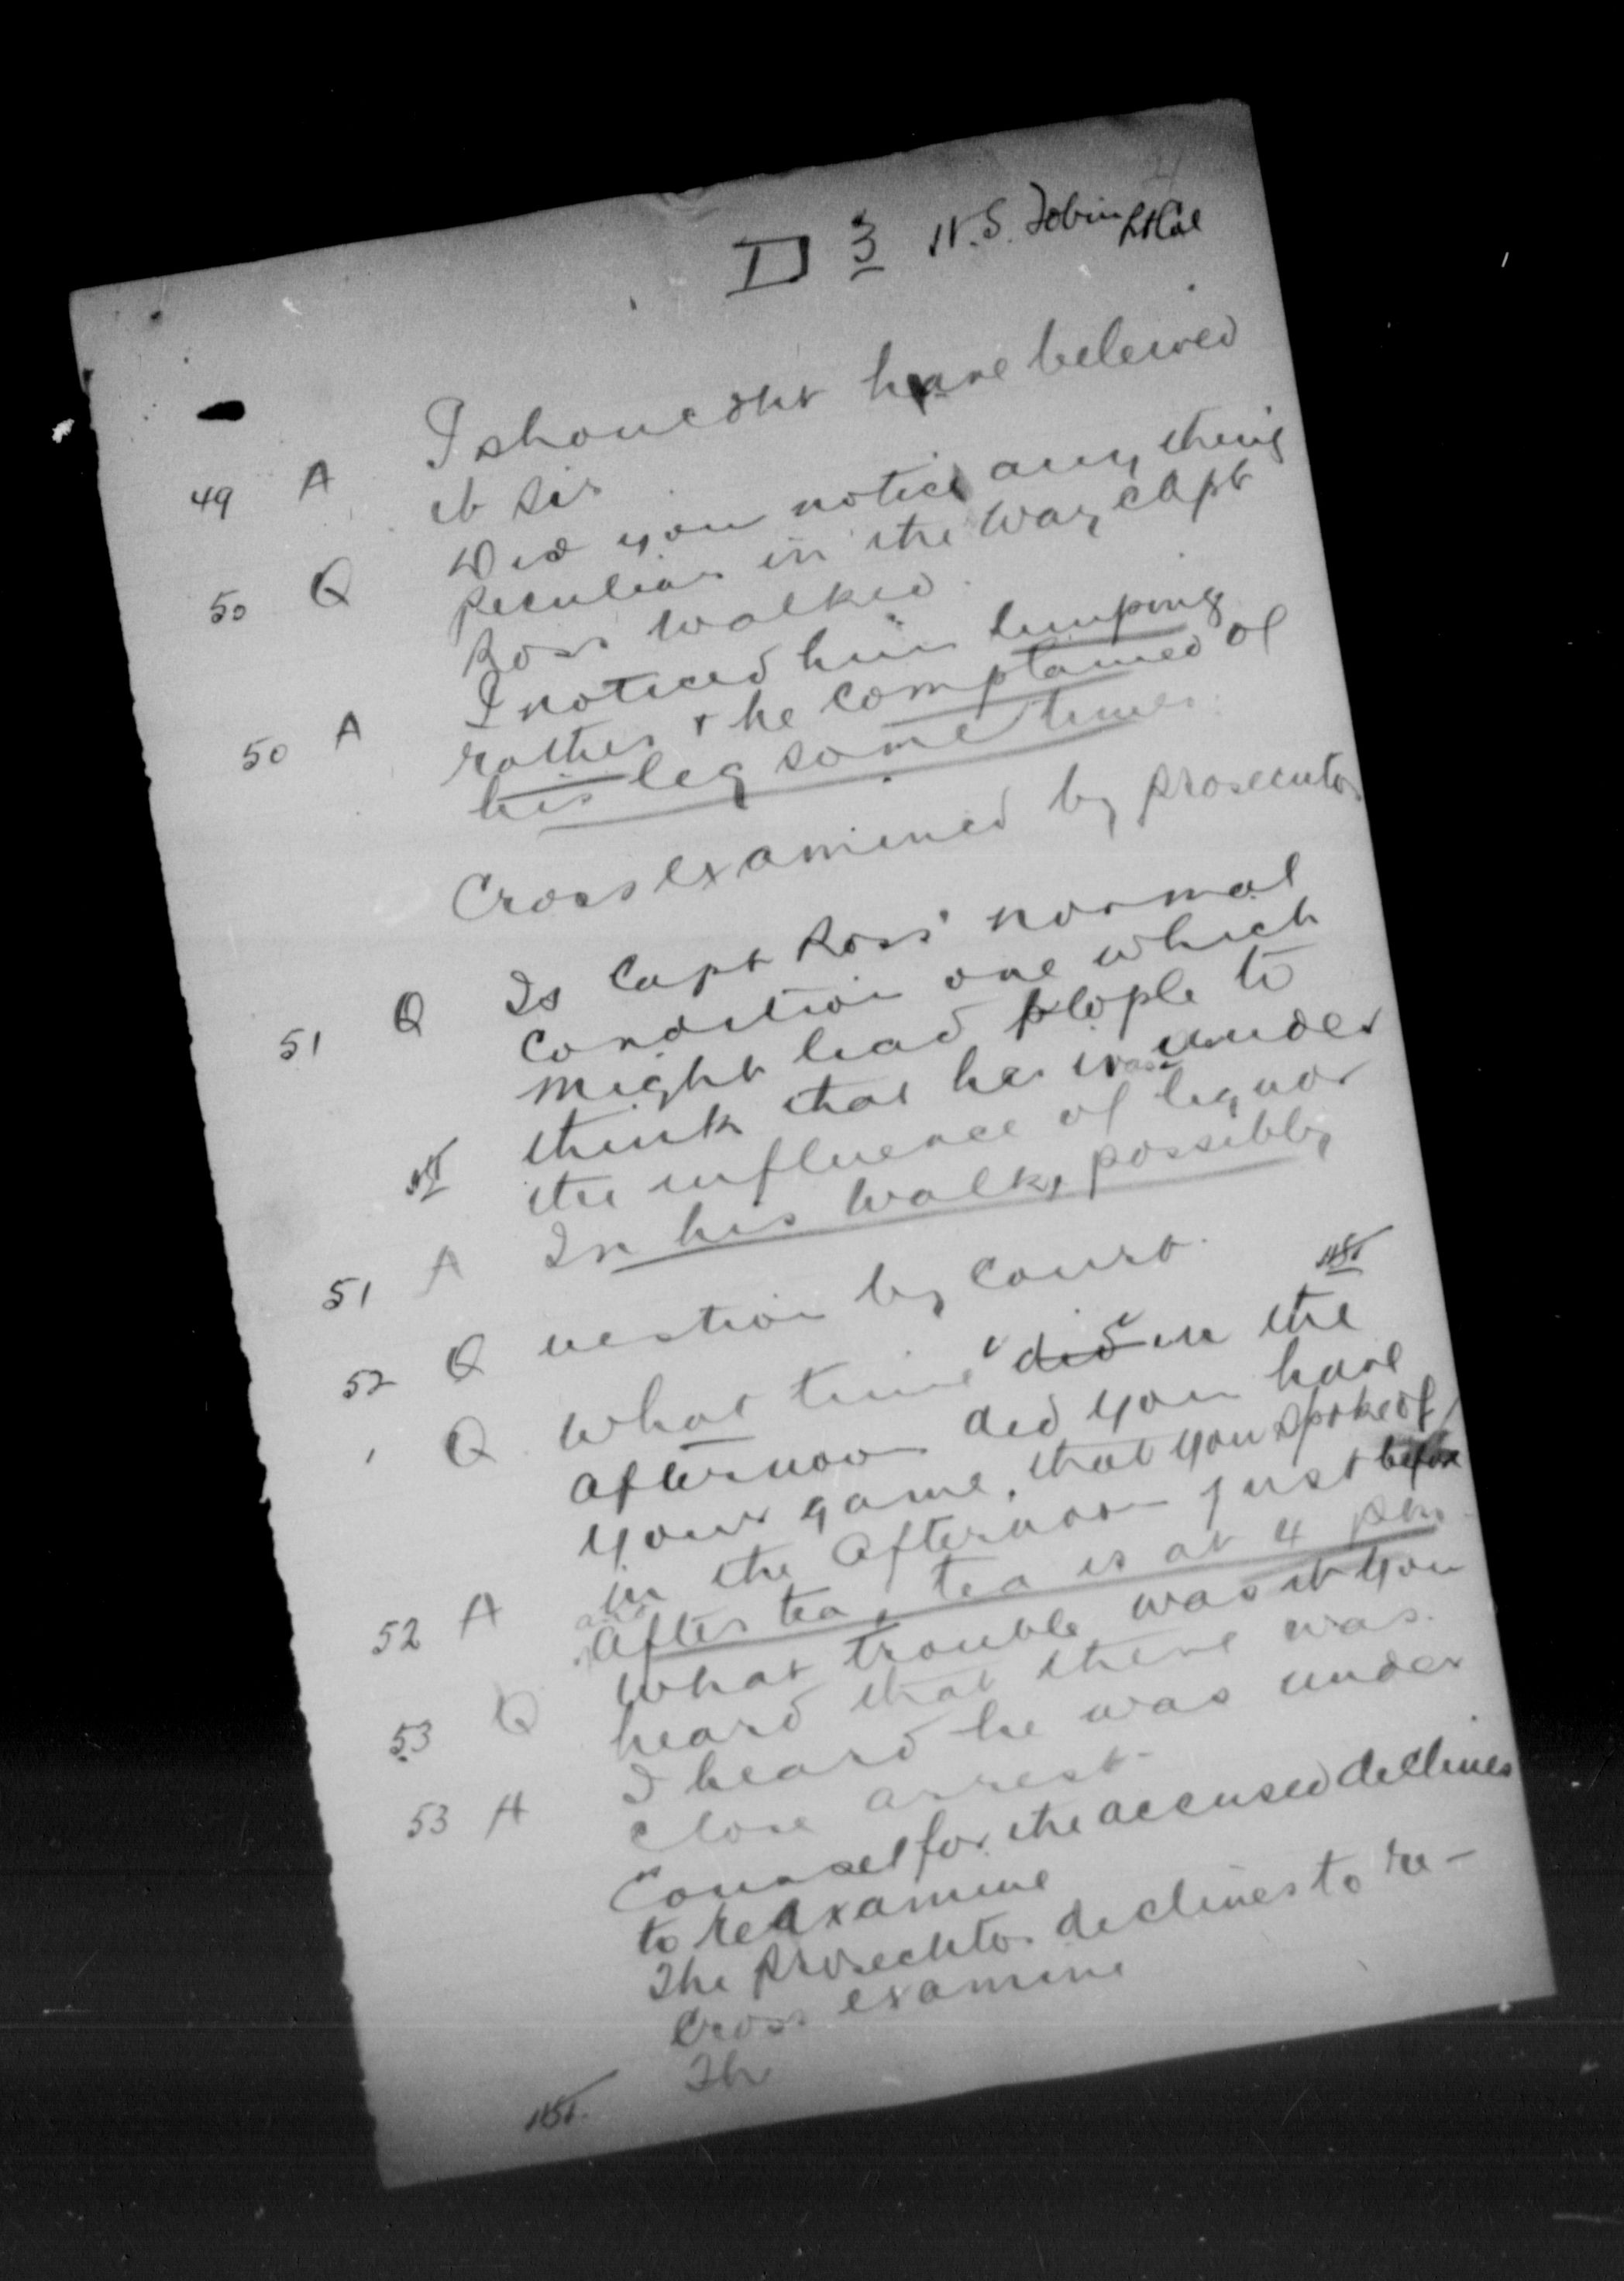 4
D 3 H.S. Tobin Lt Col
I shouldnt have beleived
49 A it sir
50 Q Did you notice any thing
peculiar in the way Capt
Ross walked.
50 A I noticed him limping
rather & he complained of
his leg sometimes.
Cross examined by prosecutor
51 Q Is Capt Ross' normal
condition one which
might lead people to
think that he was under
HST the influence of liquor
51 A In his walk, possibly
52 Question by Court. HST
Q What time "did" in the
afternoon did you have
your game, that you spoke of
52 A in the afternoon just before
and after tea, tea is at 4 pm.
53 Q What trouble was it you
heard that there was.
53 A I heard he was under
close arrest.
Counsel for the accused declines
to reexamine
The prosecutor declines to re-
cross examine
HST. Th